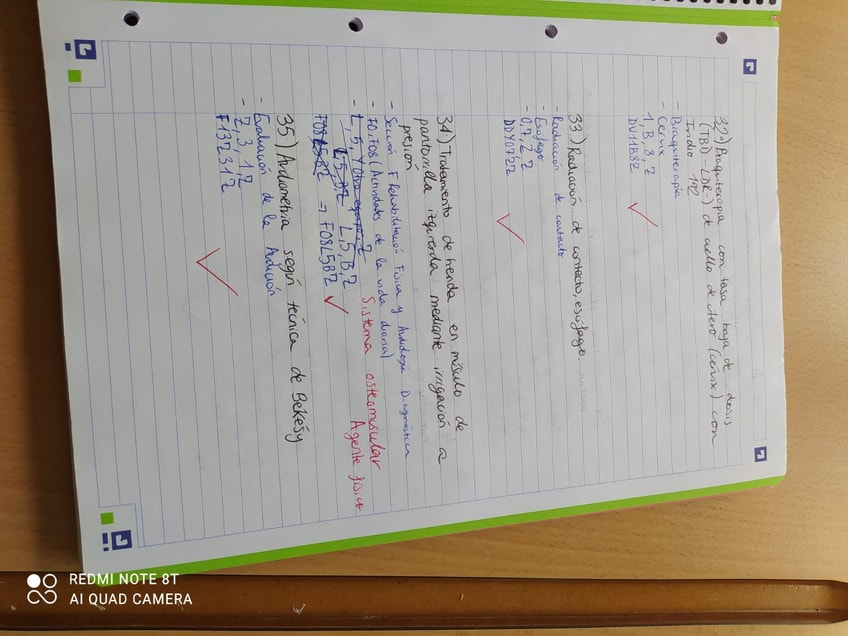 32º) Braquiterapia con tasa baja de dosis
(TBD-LDR) de cuello de útero (cérvix) con
Iridio 192
- Braquiterapia
- Cervix
- 1, B, 8, Z
DV11B8Z
33.) Radiación de contacto, esófago
- Radiación de contacto
- Esófago
- 0, 7, Z, Z
DDY07ZZ
34) Tratamiento de herida en músculo de
pantorrilla izquierda mediante irrigación a
presión
- Sección F Rehabilitación Física y Audiología Diagnóstica
- F0, F08 (Actividades de la vida diaria)
- L, 5, Y Otro equipo, Z L, 5, B, Z
L, 5, B, Z
F08L5BZ → F08L5BZ
Sistema osteomuscular
Agente físico
35) Audiometría según técnica de Bekésy
- Evaluación de la Audición
- Z, 3, 1, Z
F13Z31Z
REDMI NOTE 8T
AI QUAD CAMERA